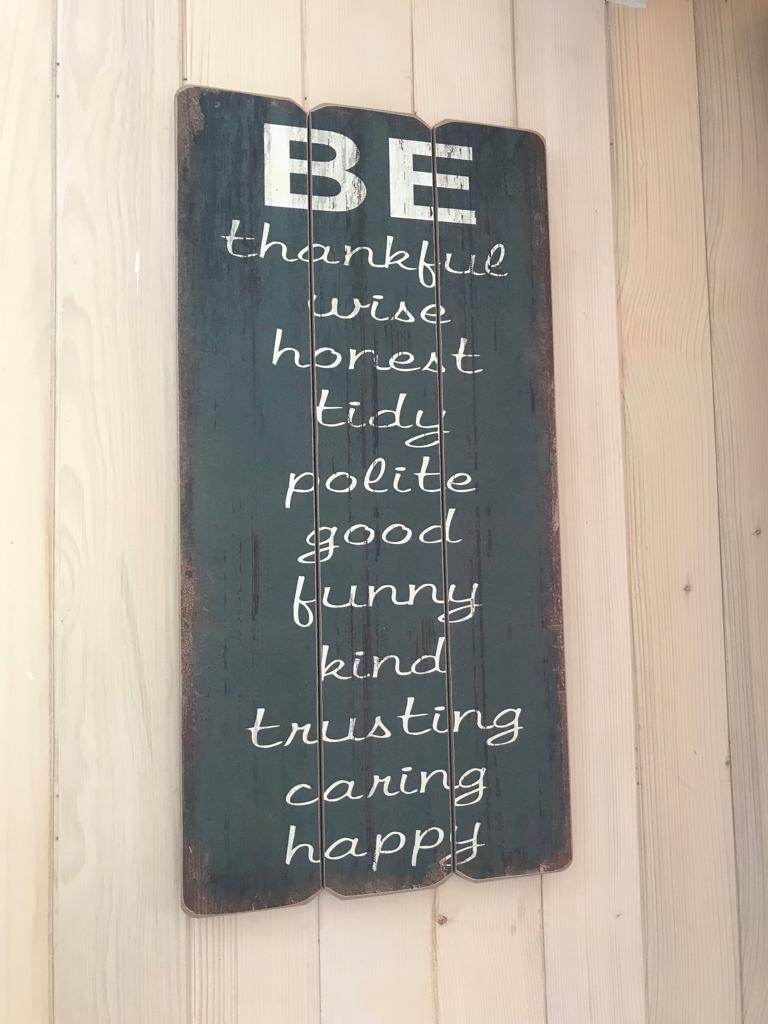 BE
thankful
wise
honest
tidy
polite
good
funny
kind
trusting
caring
happy